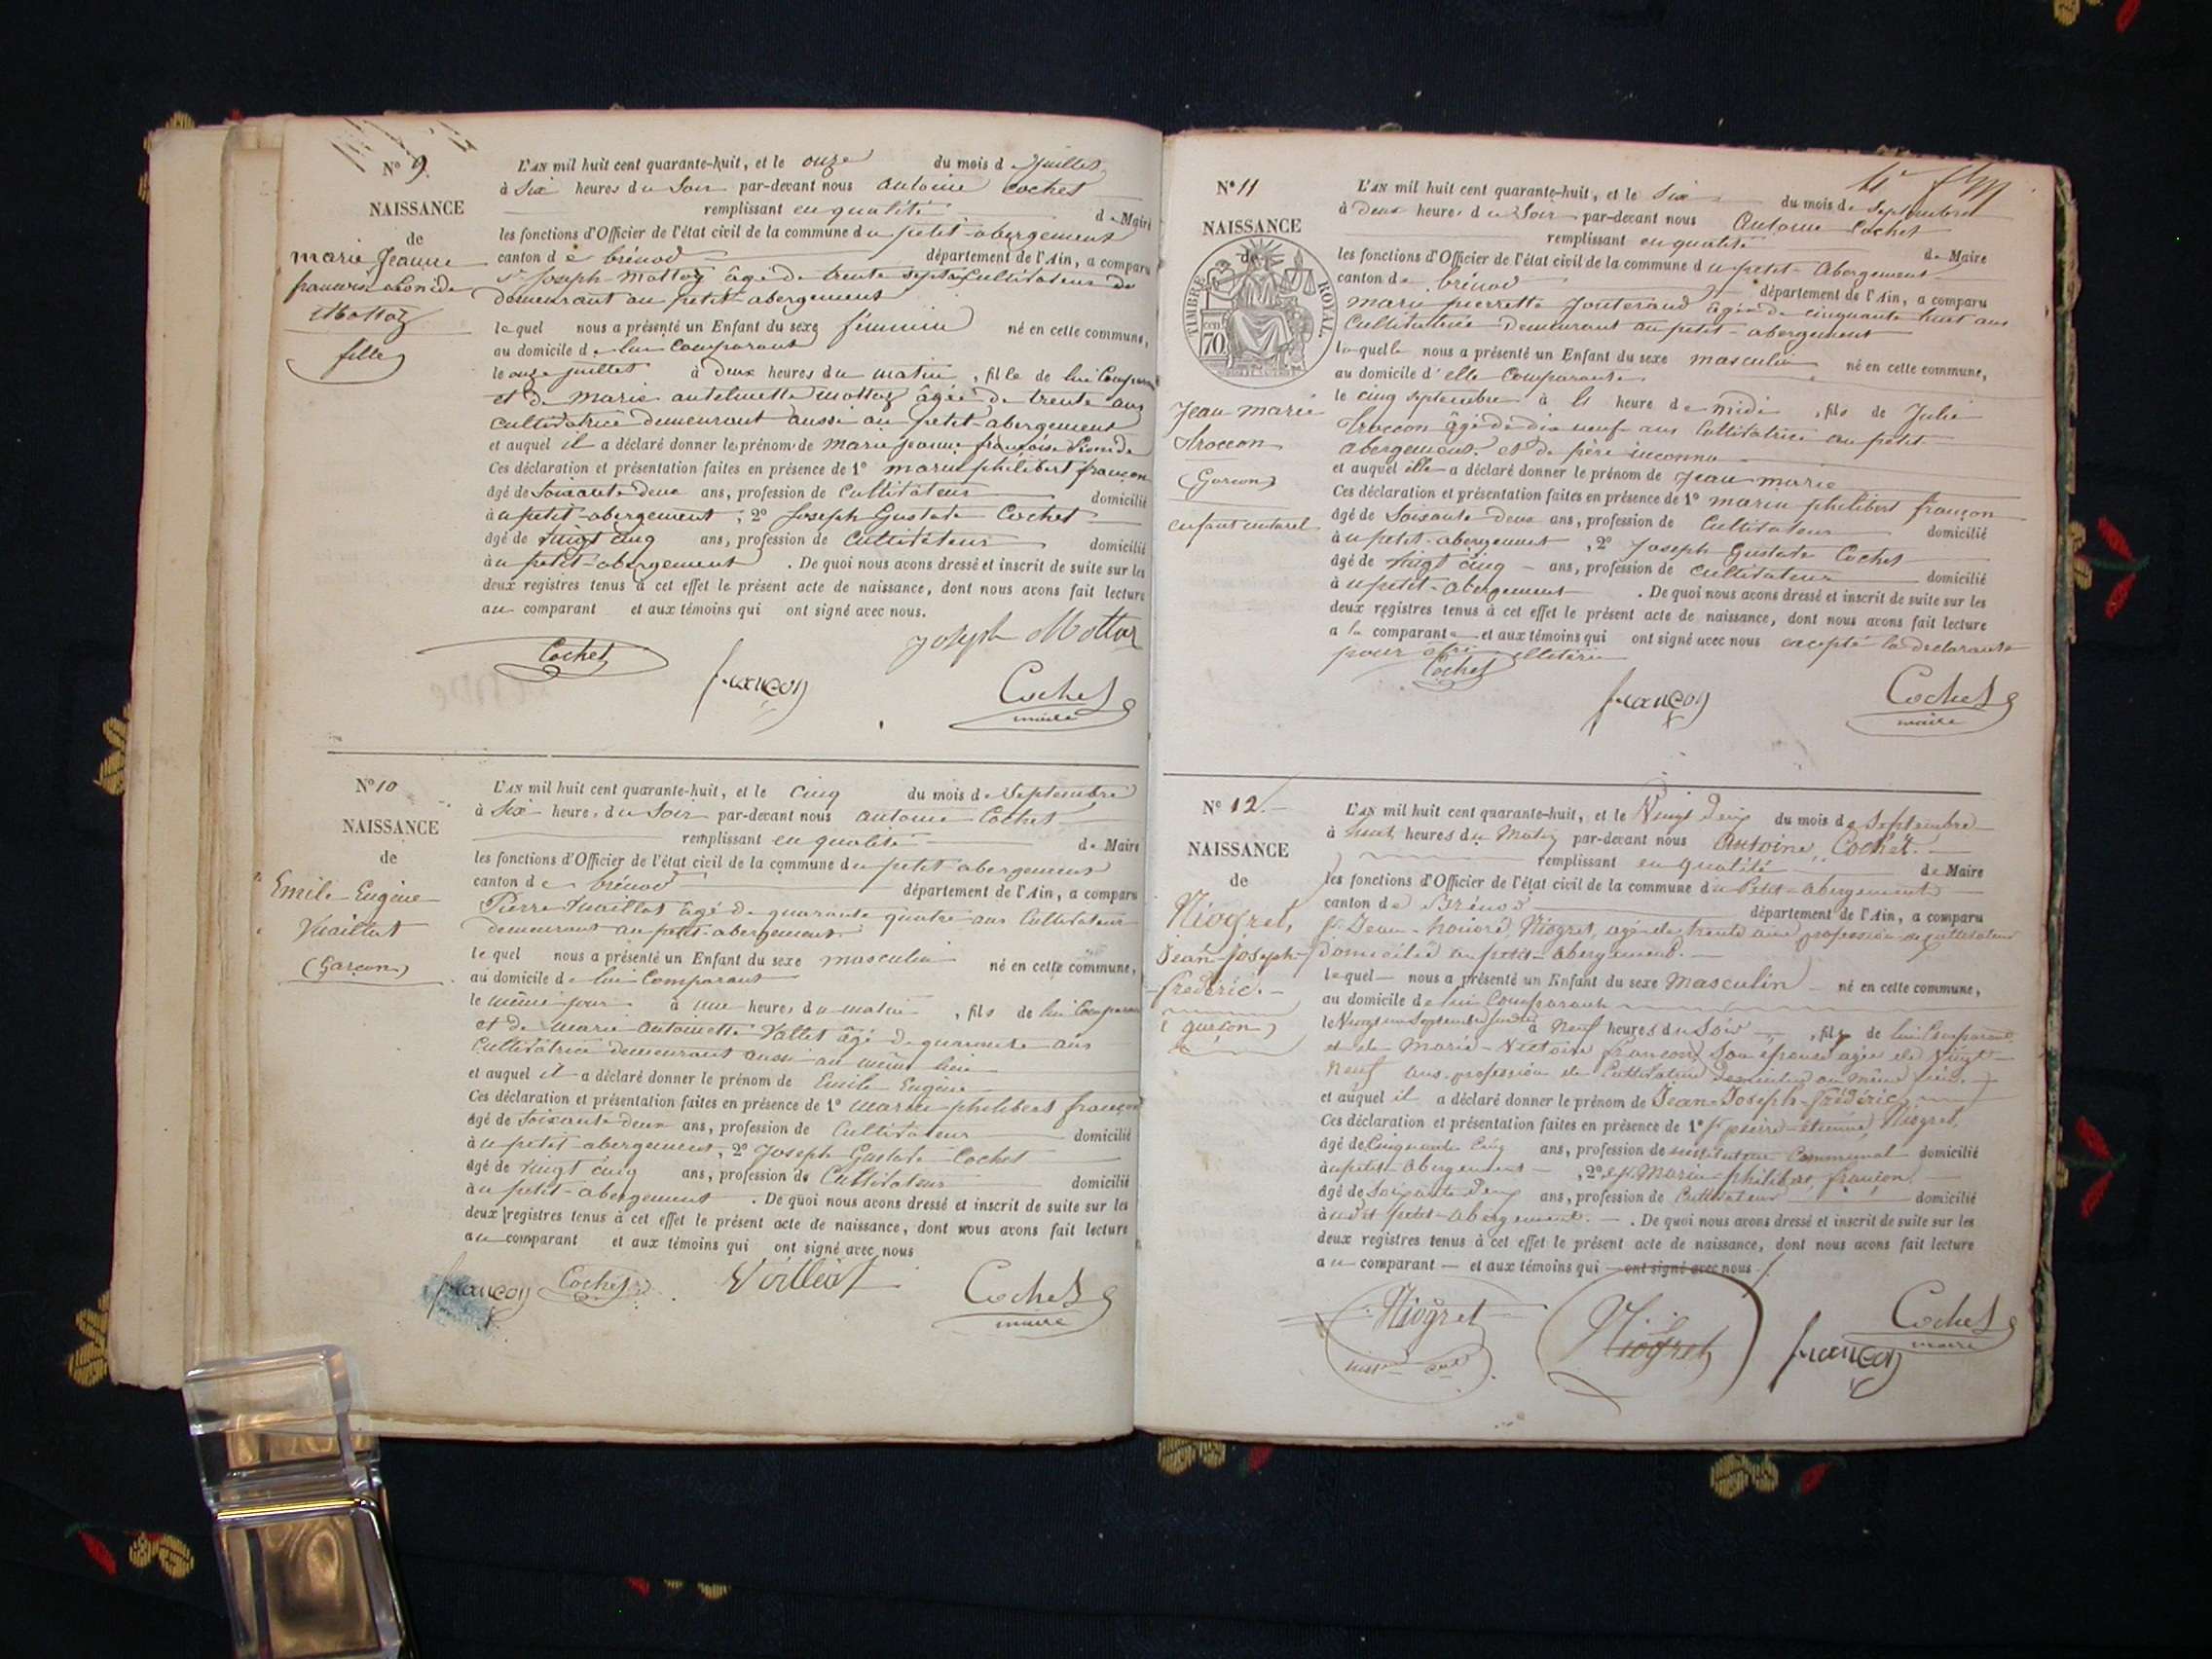 Nº 9.
NAISSANCE
de
marie Jeanne
françoise Léonide
Mottoz
fille
L'AN mil huit cent quarante-huit, et le onze du mois de Juillet
à Six heures du Soir par-devant nous antoine Cochet
remplissant en qualité de Maire
les fonctions d'Officier de l'état civil de la commune du petit-abergement
canton de brénod département de l'Ain, a comparu
sr Joseph Mottoz âgé de trente sept ans Cultivateur
demeurant au petit-abergement
lequel nous a présenté un Enfant du sexe féminin né en cette commune,
au domicile de lui Comparant
le onze juillet à deux heures du matin, fille de lui Comparant
et de marie antelmette Mottoz âgée de trente ans
cultivatrice demeurant aussi au petit-abergement
et auquel il a déclaré donner le prénom de marie jeanne françoise Léonide
Ces déclaration et présentation faites en présence de 1º marin philibert françon
âgé de Soixante deux ans, profession de Cultivateur domicilié
au petit-abergement; 2º Joseph Gustave Cochet
âgé de vingt cinq ans, profession de Cultivateur domicilié
au petit-abergement. De quoi nous avons dressé et inscrit de suite sur les
deux registres tenus à cet effet le présent acte de naissance, dont nous avons fait lecture
au comparant et aux témoins qui ont signé avec nous.
Joseph Mottoz
Cochet
françon
Cochet
maire
Nº 10
NAISSANCE
de
Emile Eugène
Vuaillat
(Garçon)
L'AN mil huit cent quarante-huit, et le cinq du mois de Septembre
à Six heures du Soir par-devant nous antoine Cochet
remplissant en qualité de Maire
les fonctions d'Officier de l'état civil de la commune du petit abergement
canton de brénod département de l'Ain, a comparu
Pierre Vuaillat âgé de quarante quatre ans Cultivateur
demeurant au petit-abergement
lequel nous a présenté un Enfant du sexe masculin né en cette commune,
au domicile de lui Comparant
le même jour à une heures du matin, fils de lui Comparant
et de marie antoinette Vallet âgé de quarante ans
Cultivatrice demeurant aussi au même lieu
et auquel il a déclaré donner le prénom de Emile Eugène
Ces déclaration et présentation faites en présence de 1º marin philibert françon
âgé de Soixante deux ans, profession de Cultivateur domicilié
au petit abergement; 2º Joseph Gustave Cochet
âgé de vingt cinq ans, profession de Cultivateur domicilié
au petit-abergement. De quoi nous avons dressé et inscrit de suite sur les
deux registres tenus à cet effet le présent acte de naissance, dont nous avons fait lecture
au comparant et aux témoins qui ont signé avec nous
françon Cochet
Cochet
maire
Nº 11
NAISSANCE
de
TIMBRE ROYAL.
70 cen
Jean marie
(Garçon)
enfant naturel
L'AN mil huit cent quarante-huit, et le Six du mois de Septembre
à Deux heures du Soir par-devant nous Antoine Cochet
remplissant en qualité de Maire
les fonctions d'Officier de l'état civil de la commune du petit-abergement
canton de brénod département de l'Ain, a comparu
marie pierrette âgée de cinquante huit ans
Cultivatrice demeurant au petit-abergement
laquelle nous a présenté un Enfant du sexe masculin né en cette commune,
au domicile d'elle Comparante
le cinq septembre à heure de midi, fils de Julie
âgé de dix neuf ans Cultivatrice au petit
abergement et de père inconnu
et auquel elle a déclaré donner le prénom de Jean marie
Ces déclaration et présentation faites en présence de 1º marin philibert françon
âgé de Soixante deux ans, profession de Cultivateur domicilié
au petit-abergement, 2º Joseph Gustave Cochet
âgé de vingt cinq ans, profession de cultivateur domicilié
au petit-abergement. De quoi nous avons dressé et inscrit de suite sur les
deux registres tenus à cet effet le présent acte de naissance, dont nous avons fait lecture
a la comparante et aux témoins qui ont signé avec nous excepté la déclarante
pour être illétérée
Cochet
françon
Cochet
maire
Nº 12.
NAISSANCE
de
Niogret,
Jean-Joseph-
frédéric.
(garçon)
L'AN mil huit cent quarante-huit, et le Vingt deux du mois de Septembre
à huit heures du Matin par-devant nous Antoine, Cochet.
remplissant en qualité de Maire
les fonctions d'Officier de l'état civil de la commune du Petit-abergement
canton de Brénod département de l'Ain, a comparu
sr Jean-honoré, Niogret, agé de trente ans profession de cultivateur
domicilié au petit-abergement.
lequel nous a présenté un Enfant du sexe Masculin né en cette commune,
au domicile de lui Comparant
le Vingt un Septembre à Neuf heures du Soir, fils de lui Comparant
et de Marie-Victoire françon, Son épouse agée de Vingt
Neuf ans profession de Cultivatrice domiciliée au même lieu.
et auquel il a déclaré donner le prénom de Jean-Joseph-frédéric
Ces déclaration et présentation faites en présence de 1º sr pierre-étienne, Niogret,
âgé de Cinquante Cinq ans, profession de instituteur Communal domicilié
au petit-abergement, 2º sr Marin-philibert, françon.
âgé de Soixante deux ans, profession de Cultivateur domicilié
au dit petit-abergement. De quoi nous avons dressé et inscrit de suite sur les
deux registres tenus à cet effet le présent acte de naissance, dont nous avons fait lecture
au comparant et aux témoins qui ont signé avec nous
Niogret
Niogret
françon
Cochet
maire